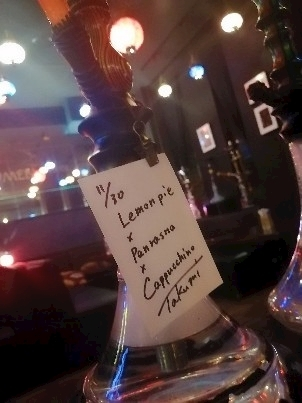 11/30
Lemon pie
x
Panrasna
x
Cappucchino
Takumi